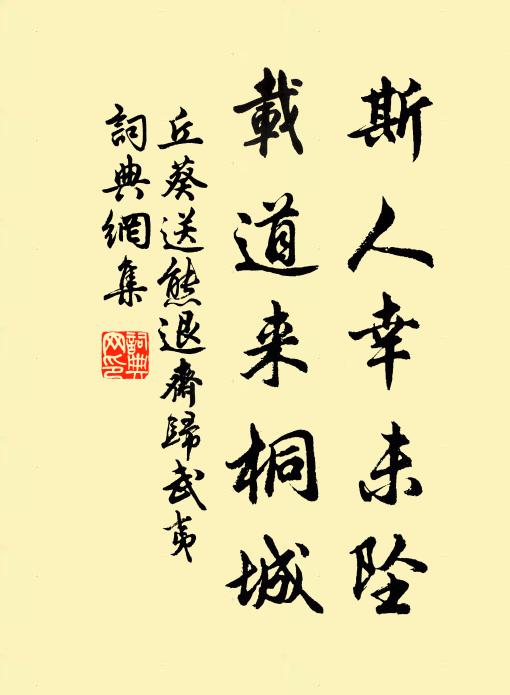 斯人幸未坠
載道来桐城
丘葵送熊退齋歸武夷
詞典網集
詞典
网印